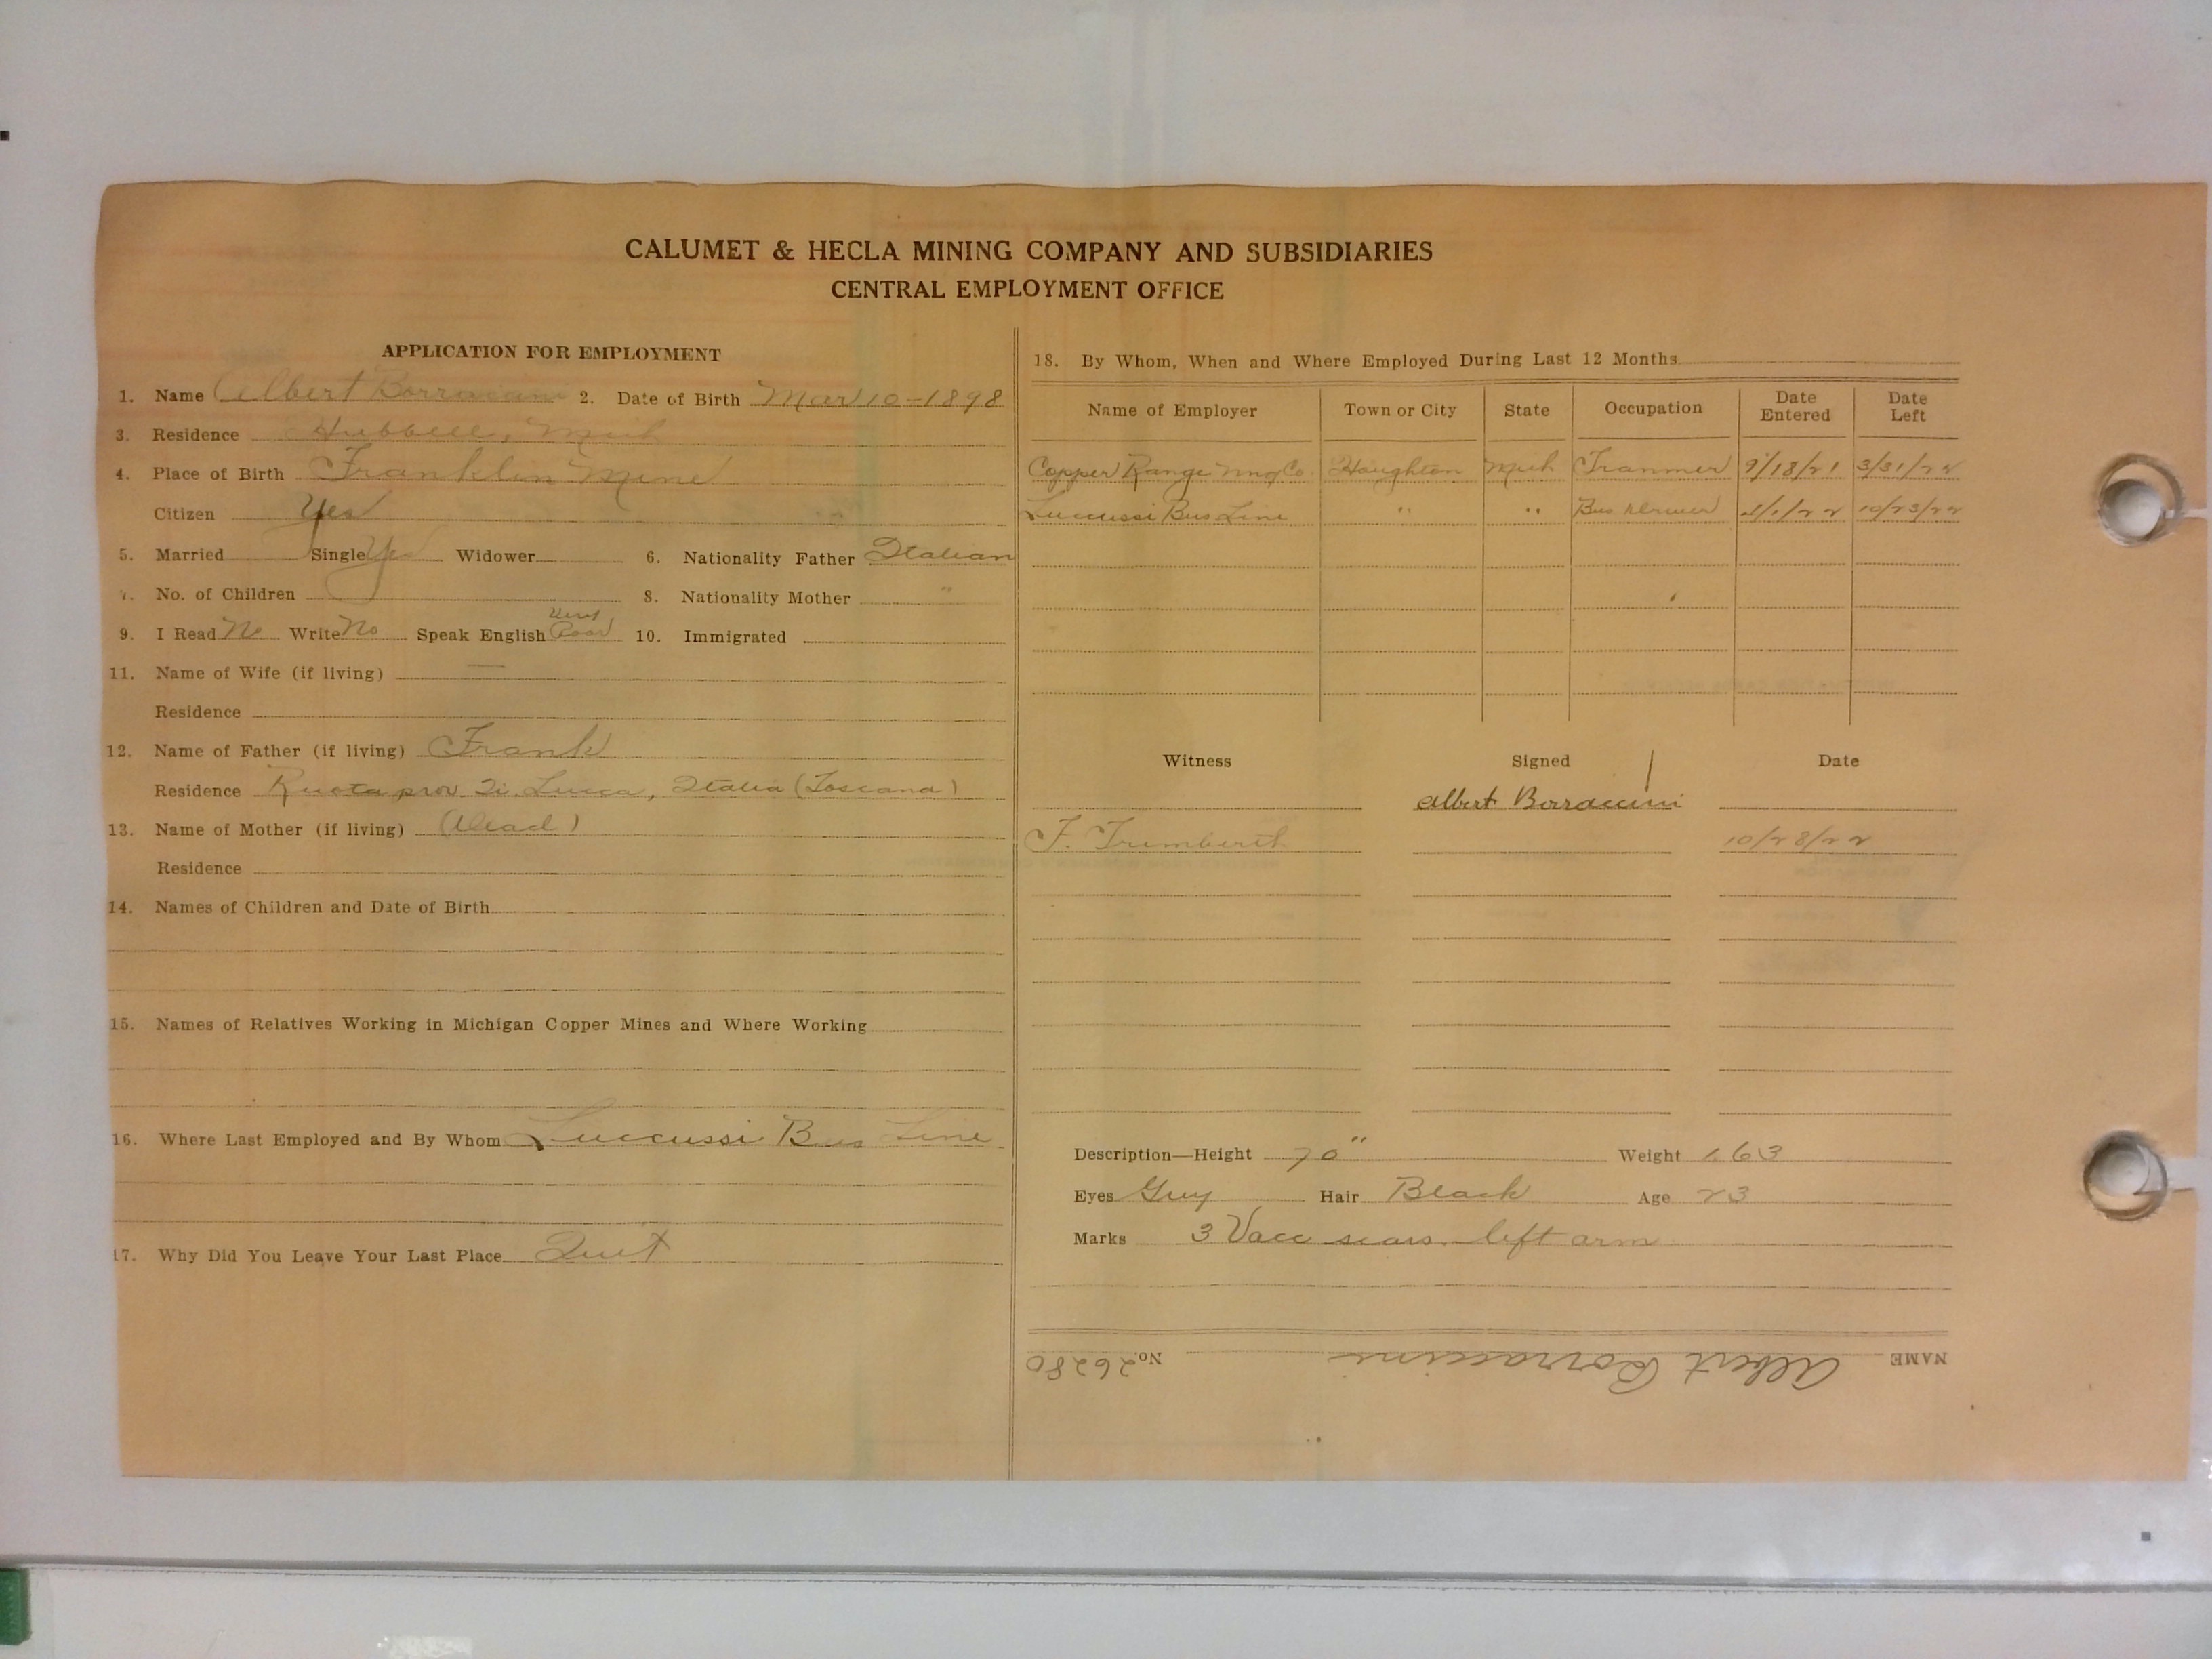 CALUMET & HECLA MINING COMPANY AND SUBSIDIARIES
CENTRAL EMPLOYMENT OFFICE
APPLICATION FOR EMPLOYMENT
1. Name Albert Borraccini 2. Date of Birth Mar 10-1898
3. Residence Hubbell, Mich
4. Place of Birth Franklin Mine
Citizen Yes
5. Married Single Yes Widower 6. Nationality Father Italian
7. No. of Children 8. Nationality Mother "
9. I Read No Write No Speak English Very Poor 10. Immigrated
11. Name of Wife (if living) —
Residence
12. Name of Father (if living) Frank
Residence Ruota prov Di Lucca, Italia (Toscana)
13. Name of Mother (if living) (Dead)
Residence
14. Names of Children and Date of Birth
15. Names of Relatives Working in Michigan Copper Mines and Where Working
16. Where Last Employed and By Whom Luccussi Bus Line
17. Why Did You Leave Your Last Place Quit
18. By Whom, When and Where Employed During Last 12 Months
Name of Employer Town or City State Occupation Date Entered Date Left
Copper Range Mng Co. Houghton Mich Trammer 9/18/21 3/31/22
Luccussi Bus Line " " Bus Driver /1/22 10/23/22
Witness Signed Date
Albert Borraccini
F. 10/28/22
Description—Height 70" Weight 163
Eyes Grey Hair Black Age 23
Marks 3 Vacc scars left arm
NAME Albert Borraccini No. 26280